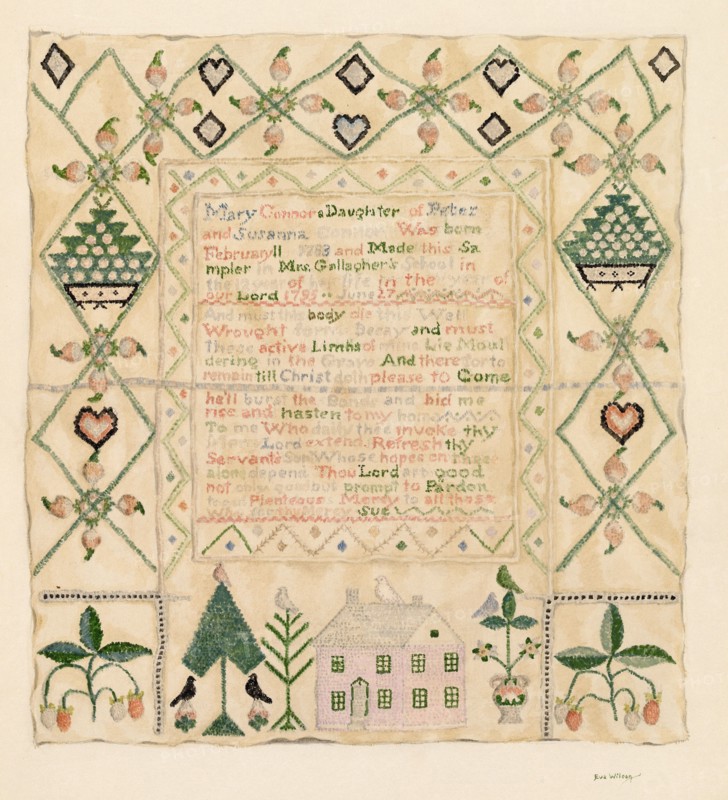 Mary Connor a Daughter of Peter
and Susanna Connor Was born
February 11 1783 and Made this Sa
mpler in Mrs. Gallagher's School in
the of her life in the year of
our Lord 1795 June 27
And must this body die this Well
Wrought Decay and must
These active Limbs of mine Lie Moul
dering in the Grave And there for to
remain till Christ doth please to Come
he'll burst the Bonds and bid me
rise and hasten to my home
To me Who daily thee invoke thy
Lord extend. Refresh thy
Servants Whose hopes on thee
alone depend Thou Lord art good
not only good but prompt to Pardon
Plenteous Mercy to all those
for thy Mercy Sue
Eva Wilson